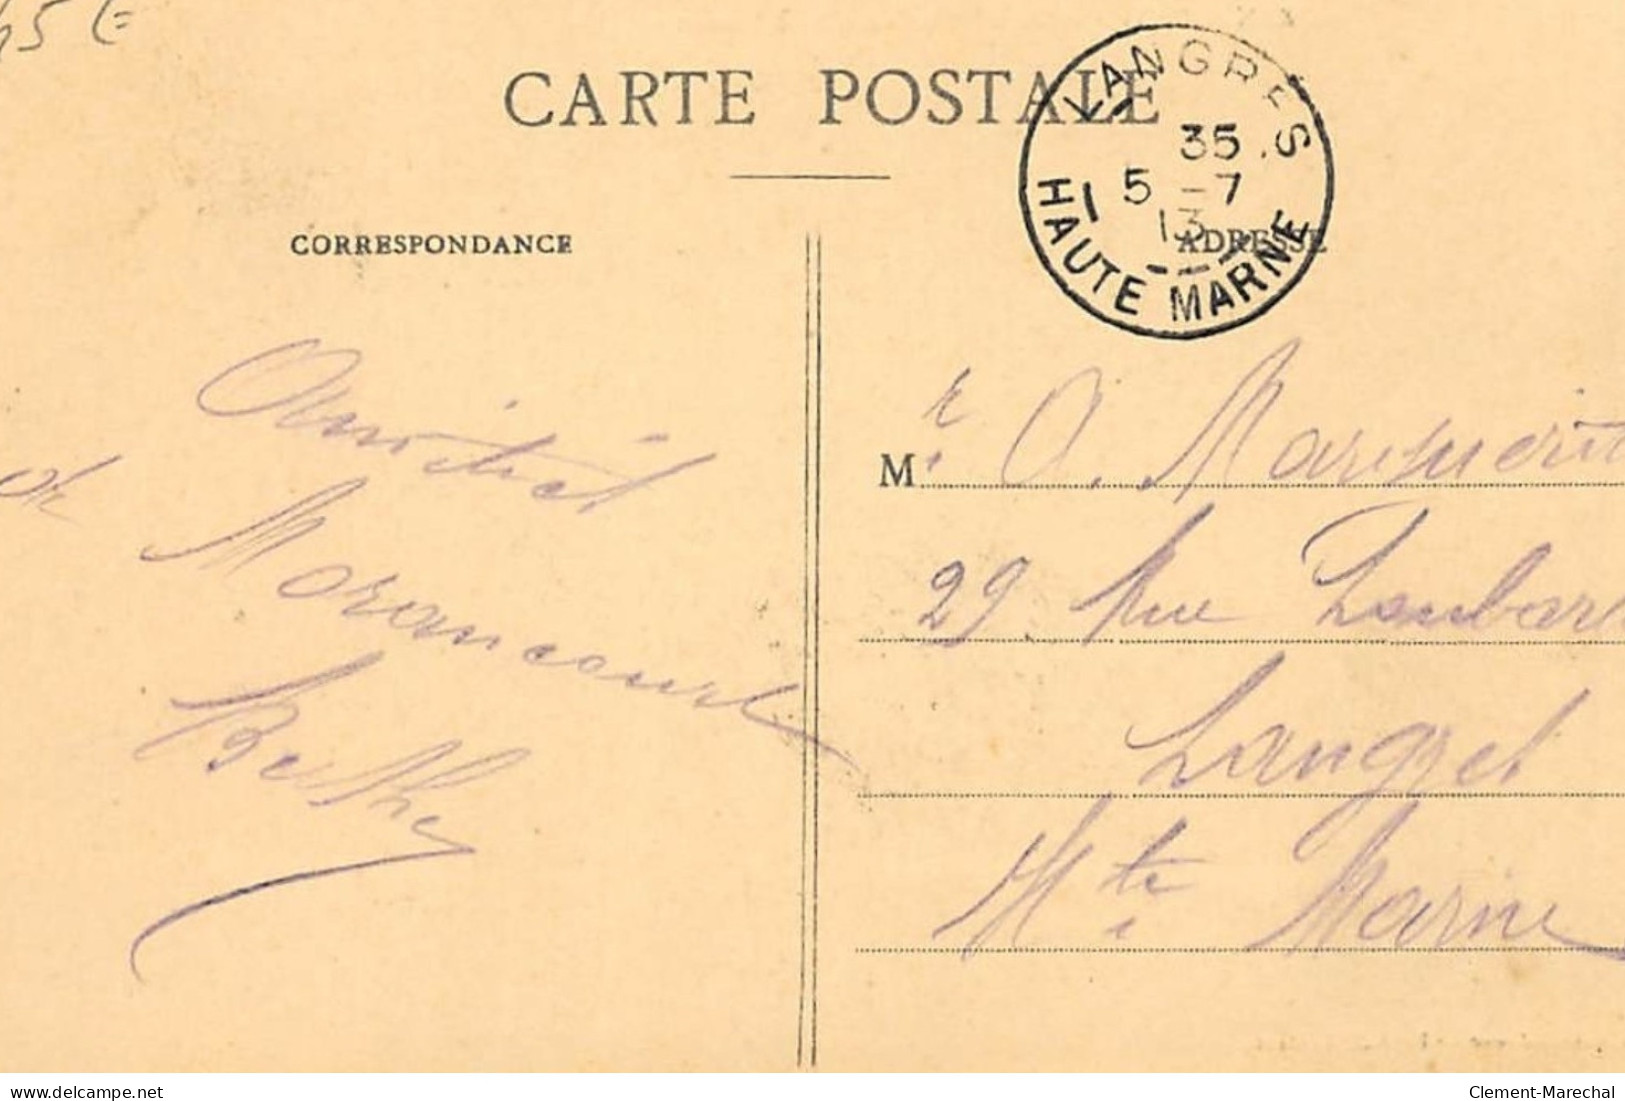 45 €
CARTE POSTALE
LANGRES
35
5 - 7
13
HAUTE MARNE
CORRESPONDANCE
ADRESSE
Amitiés
de Morancourt
Berthe
Mr. A. Marguerit
29 Rue Lombard
Langres
Hte Marne
delcampe.net
Clement-Marechal